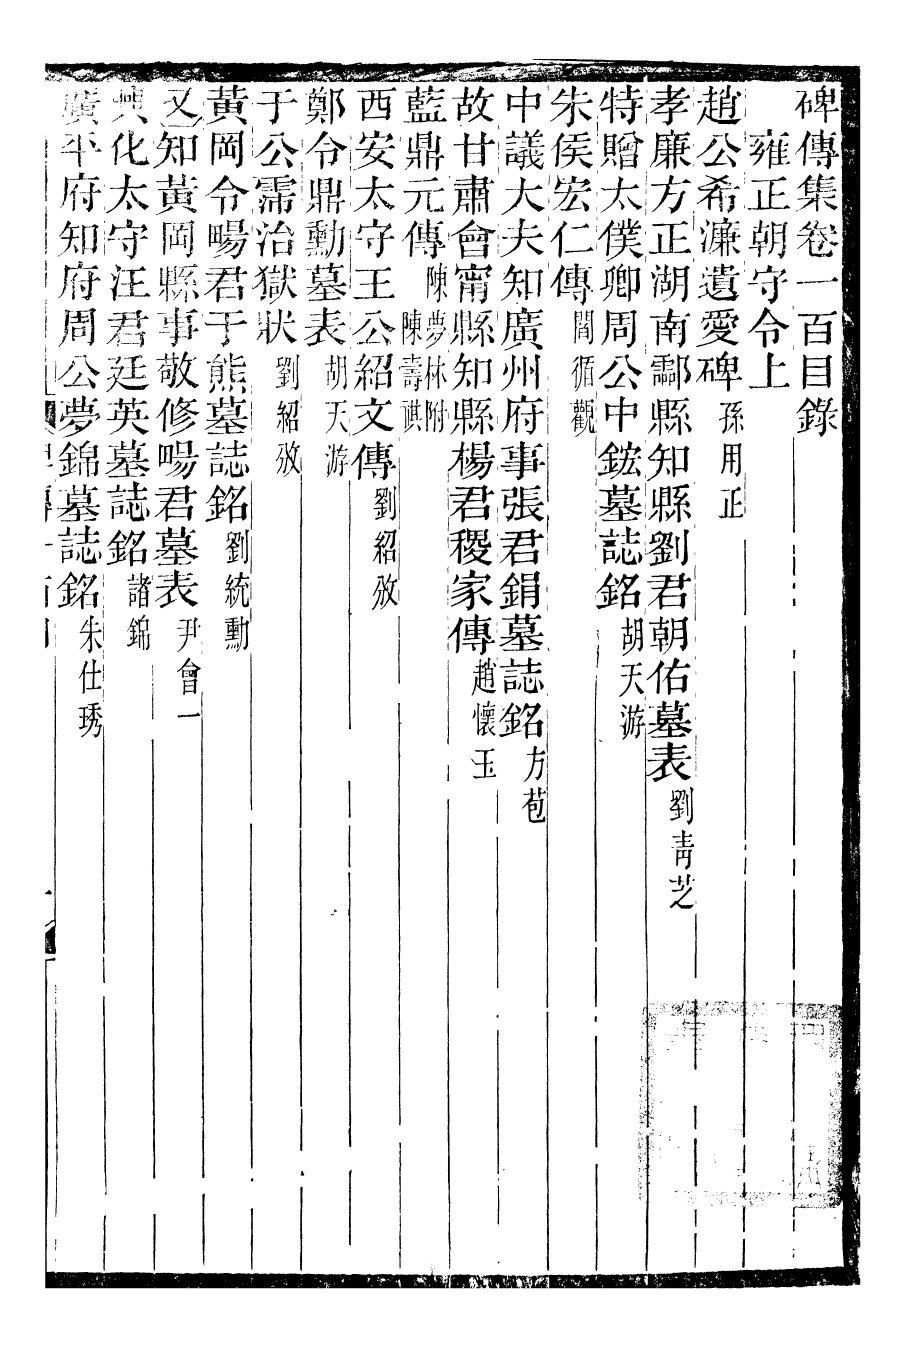 碑傳集卷一百目錄
雍正朝守令上
趙公希濂遺愛碑 孫用正
孝廉方正湖南酃縣知縣劉君朝佑墓表 劉青芝
特贈太僕卿周公中鋐墓誌銘 胡天游
朱侯宏仁傳 閻循觀
中議大夫知廣州府事張君鋗墓誌銘 方苞
故甘肅會甯縣知縣楊君稷家傳 趙懷玉
藍鼎元傳 陳夢林附 陳壽祺
西安太守王公紹文傳 劉紹攽
鄭令鼎勳墓表 胡天游
于公霈治獄狀 劉紹攽
黃岡令暢君于熊墓誌銘 劉統勳
又知黃岡縣事敬修暢君墓表 尹會一
興化太守汪君廷英墓誌銘 諸錦
廣平府知府周公夢錦墓誌銘 朱仕琇